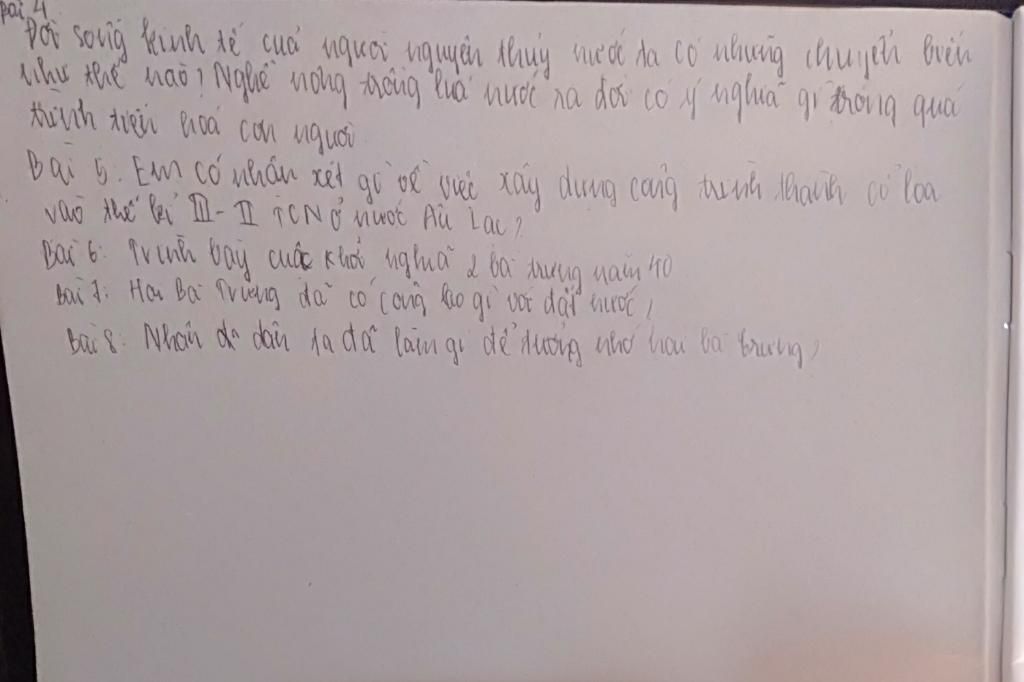 Bài 4
Đời sống kinh tế của người nguyên thủy nước ta có những chuyển biến
như thế nào? Nghề nông trồng lúa nước ra đời có ý nghĩa gì trong quá
trình tiến hoá con người
Bài 5: Em có nhận xét gì về việc xây dựng công trình thành cổ loa
vào thế kỉ III - II TCN ở nước Âu Lạc?
Bài 6: Trình bày cuộc khởi nghĩa 2 bà trưng năm 40
Bài 7: Hai Bà Trưng đã có công lao gì với đất nước?
Bài 8: Nhân dân ta đã làm gì để tưởng nhớ hai bà trưng?